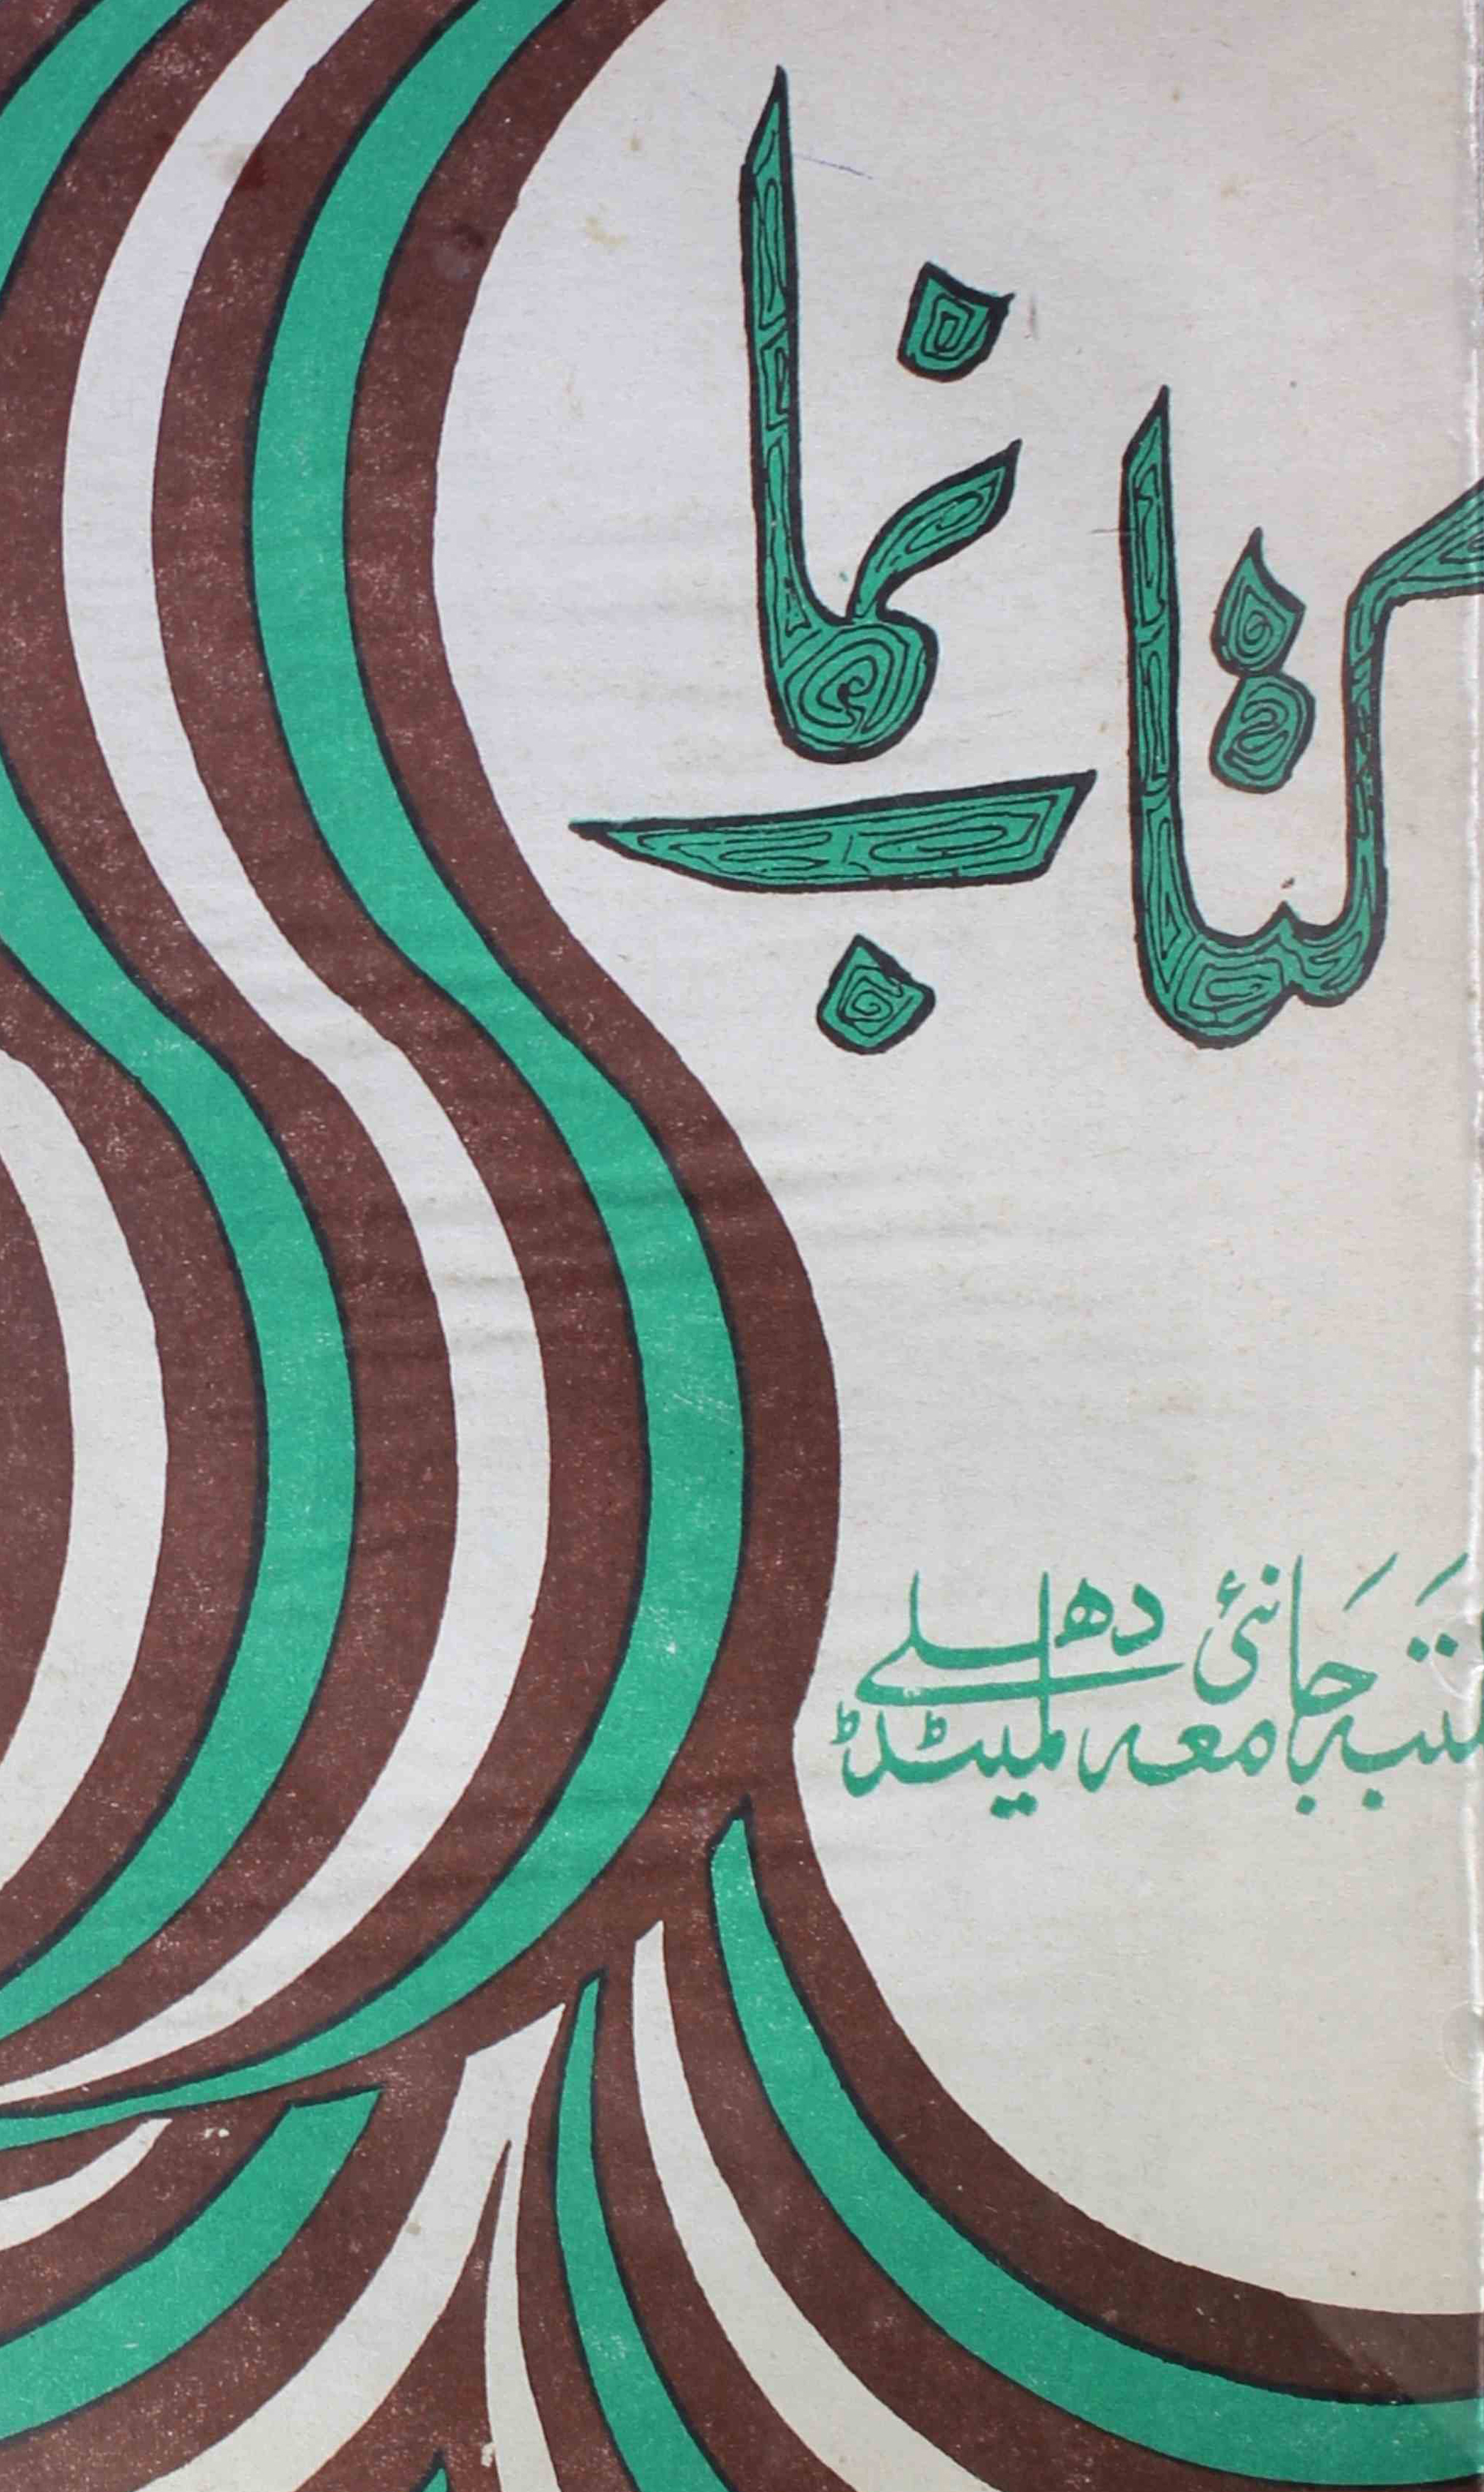 کتاب نما
مکتبہ جامعہ لمیٹڈ
نئی دھلی